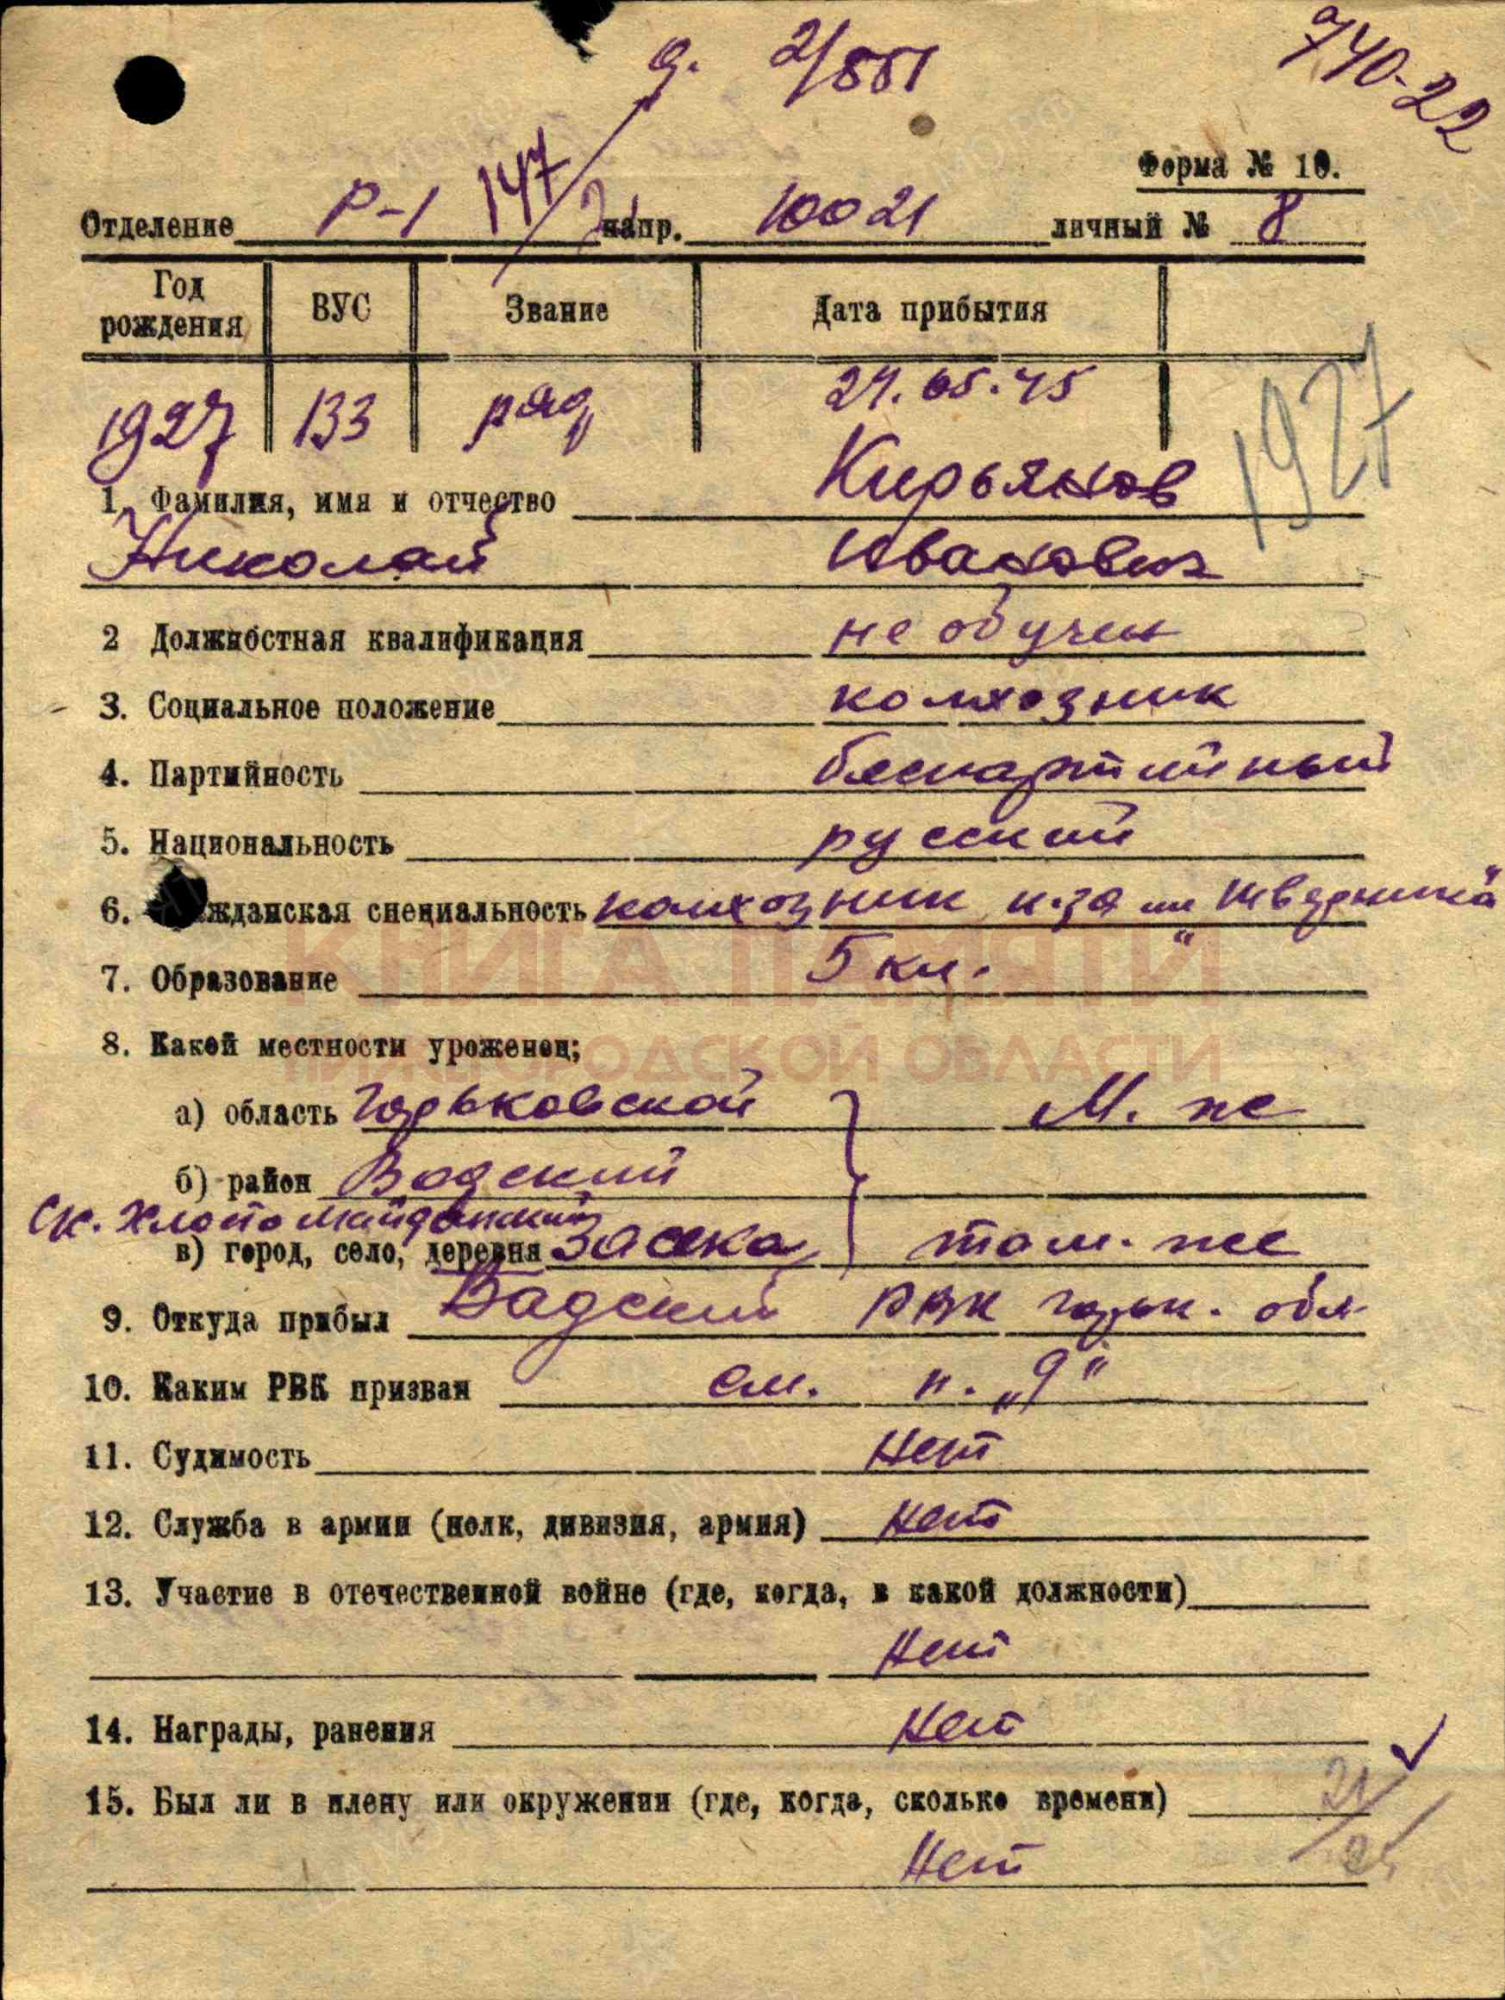 д. 2/551
740-22
147/
Форма № 10.
Отделение Р-1 напр. 10021 личный № 8
Год рождения ВУС Звание Дата прибытия
1927 133 ряд 24.05.45
1927
1. Фамилия, имя и отчество Кирьянов
Николай Иванович
2 Должностная квалификация не обучен
3. Социальное положение колхозник
4. Партийность беспартийный
5. Национальность русский
6. жданская специальность колхозник к-за им "Шверника"
КНИГА ПАМЯТИ
7. Образование 5 кл.
8. Какой местности уроженец;
НИЖЕГОРОДСКОЙ ОБЛАСТИ
а) область Горьковской М. же
б) район Вадский
с/с. Хлопомайданский
в) город, село, деревня Засека там-же
9. Откуда прибыл Вадский РВК горьк. обл
10. Каким РВК призван см. п. „9"
11. Судимость Нет
12. Служба в армии (полк, дивизия, армия) Нет
13. Участие в отечественной войне (где, когда, в какой должности)
Нет
14. Награды, ранения Нет
15. Был ли в плену или окружении (где, когда, сколько времени)
Нет